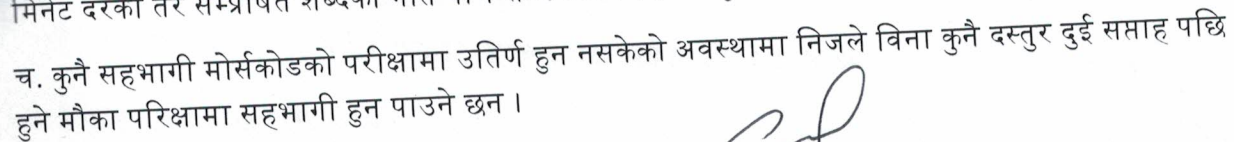 मिनेट दरका तर सम्प्रेषित शब्दका
च. कुनै सहभागी मोर्सकोडको परीक्षामा उतिर्ण हुन नसकेको अवस्थामा निजले विना कुनै दस्तुर दुई सप्ताह पछि
हुने मौका परिक्षामा सहभागी हुन पाउने छन ।